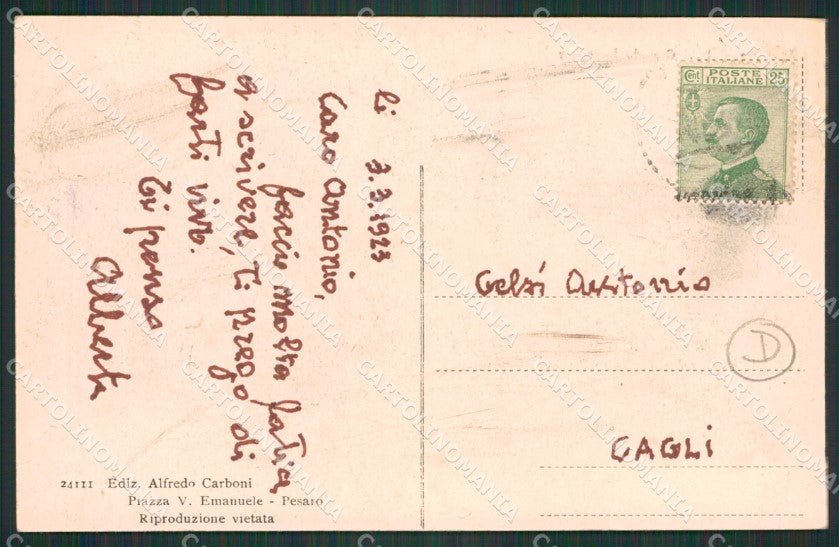 li 3.3.1923
Caro Antonio,
faccio molta fatica
a scrivere, ti prego di
farti vivo.
Ti penso
Alberta
Cent POSTE ITALIANE 25
Gelsi Antonio
D
CAGLI
24111 Ediz. Alfredo Carboni
Piazza V. Emanuele - Pesaro
Riproduzione vietata
CARTOLINOMANIA